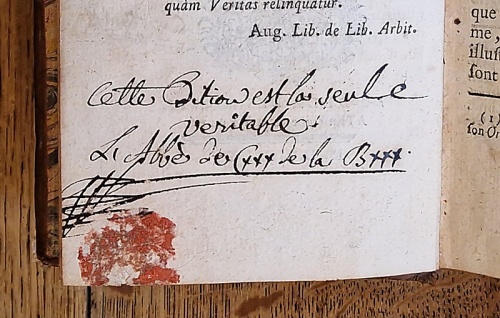 quàm Veritas relinquatur.
Aug. Lib. de Lib. Arbit.
Cette Edition est la seule
veritable.
L'Abbé De Cxxx de la Bxxx
que
me,
illuf
font
(1)